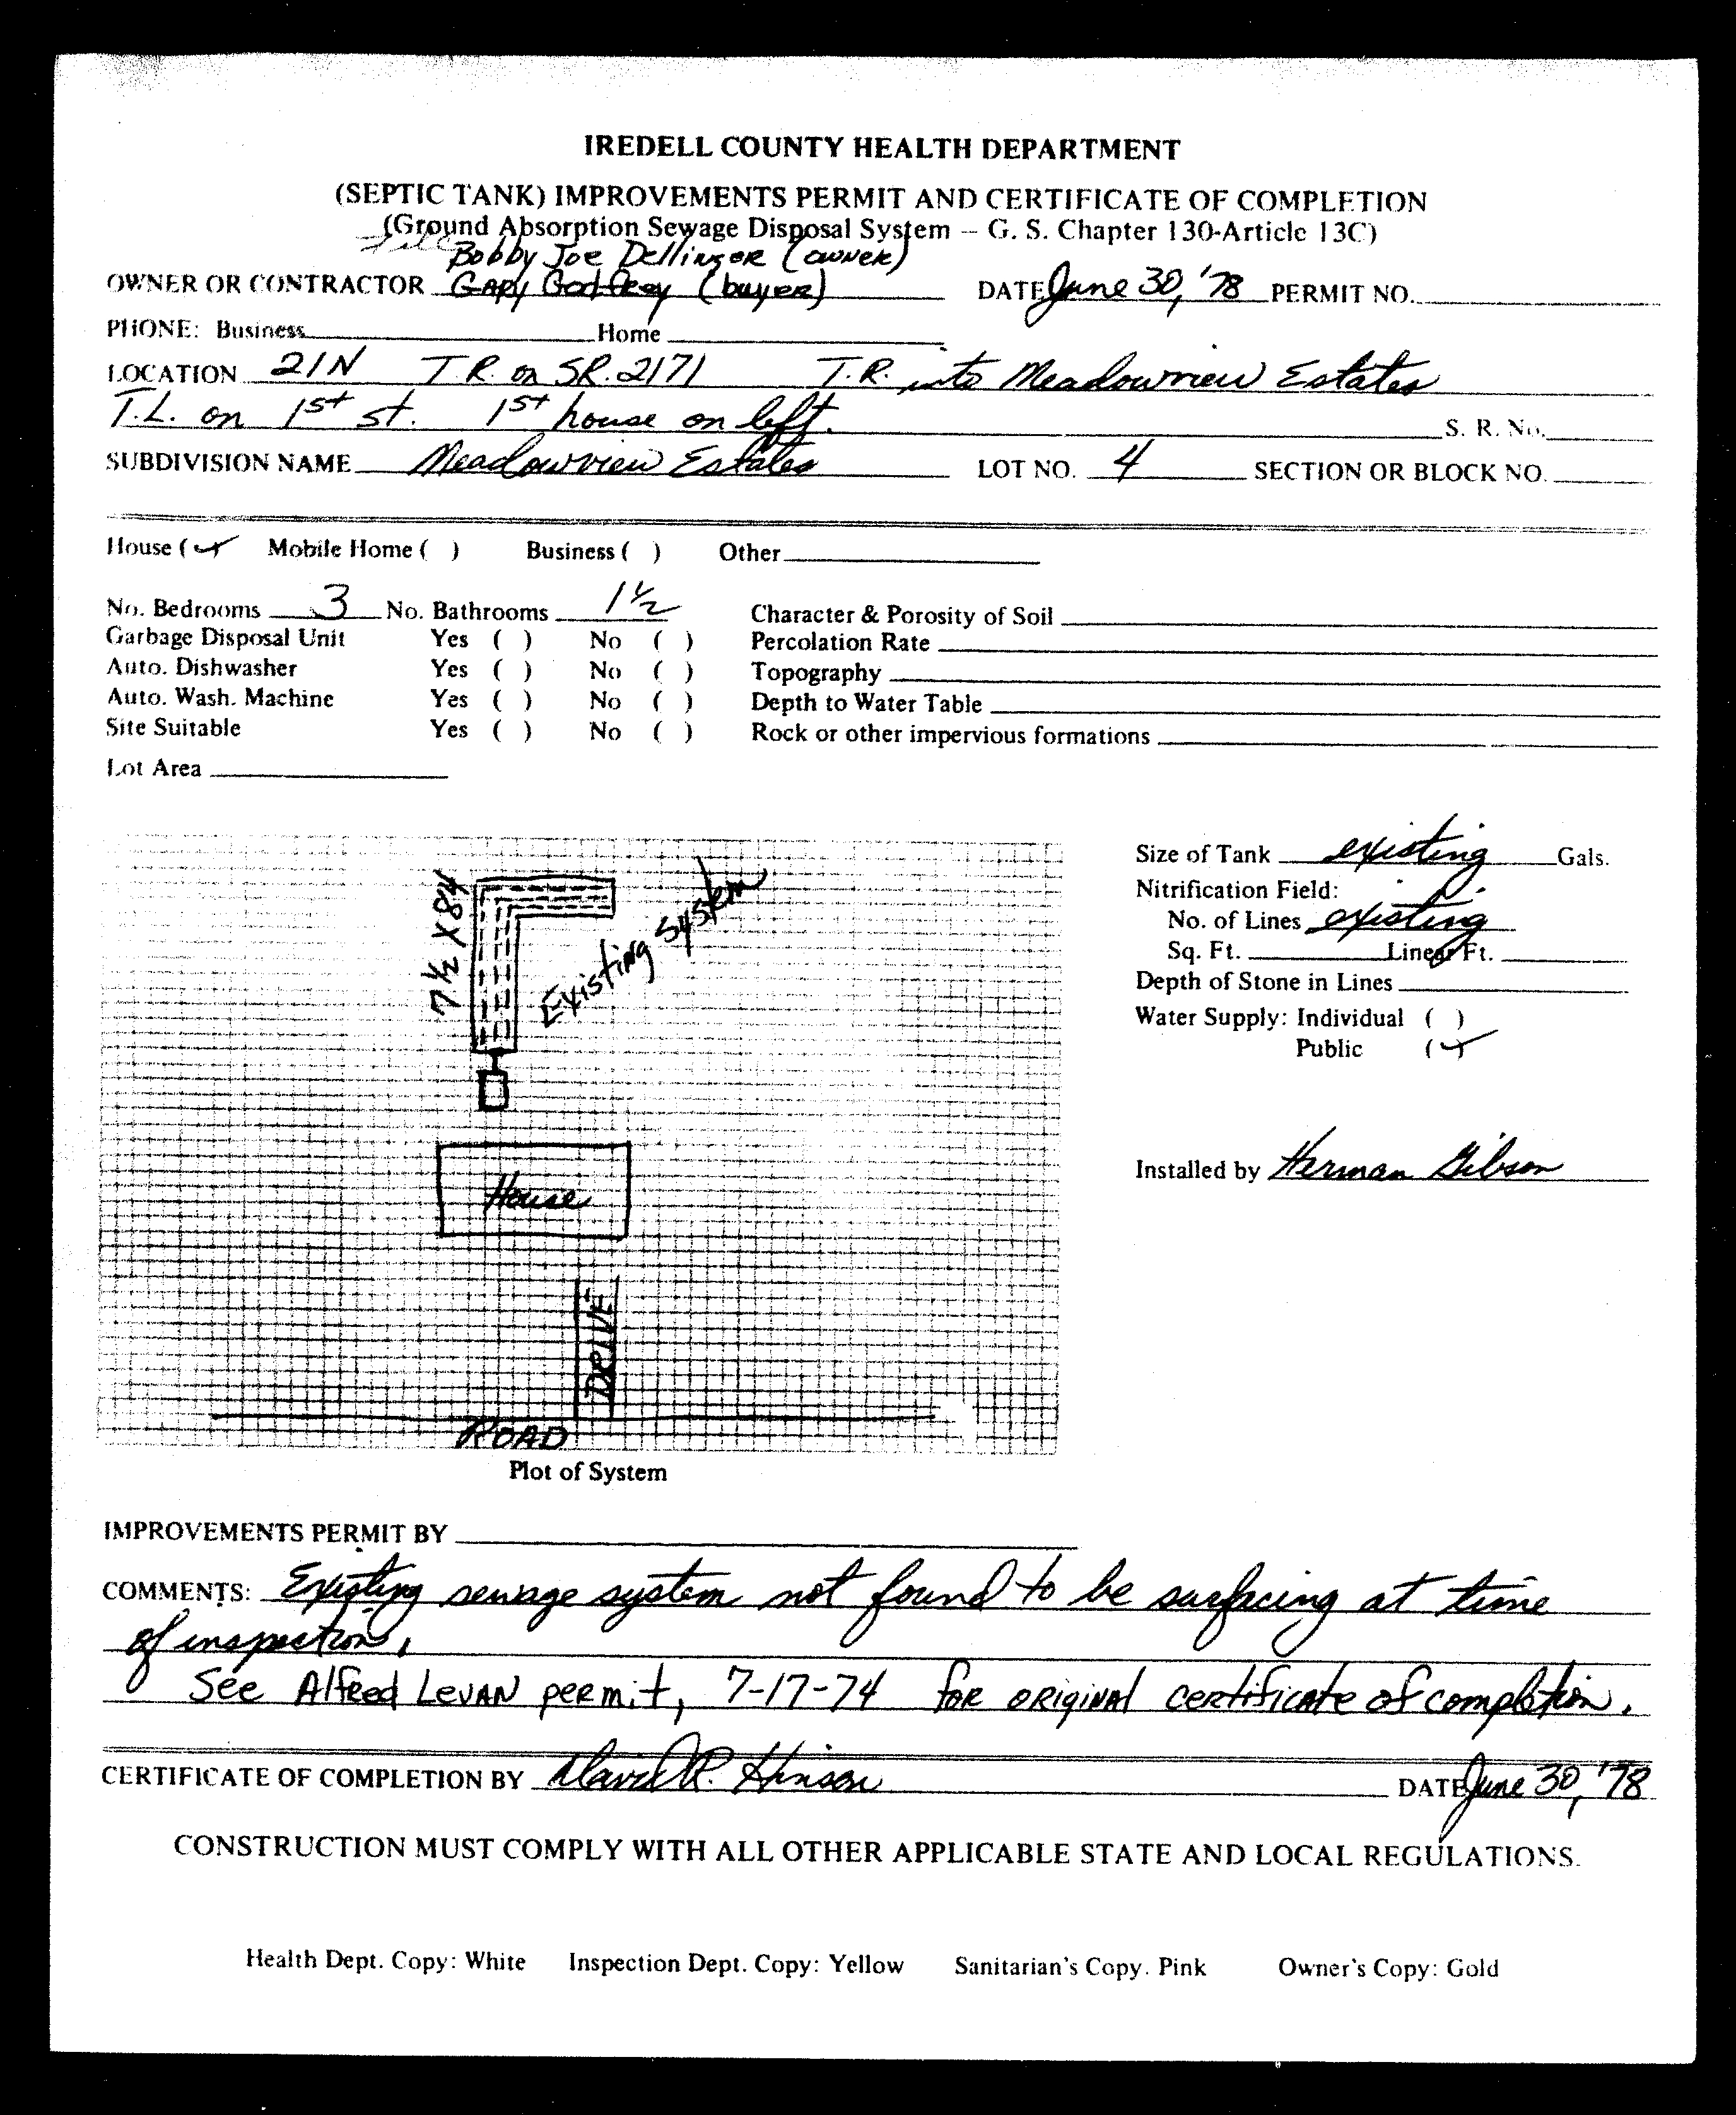 IREDELL COUNTY HEALTH DEPARTMENT
(SEPTIC TANK) IMPROVEMENTS PERMIT AND CERTIFICATE OF COMPLETION
(Ground Absorption Sewage Disposal System – G. S. Chapter 130-Article 13C)
Bobby Joe Dellinger (owner)
OWNER OR CONTRACTOR Gary Godfrey (buyer) DATE June 30, '78 PERMIT NO.
PHONE: Business Home
LOCATION 21N T.R. on SR. 2171 T.R. into Meadowview Estates
T.L. on 1st st. 1st house on left. S. R. No.
SUBDIVISION NAME Meadowview Estates LOT NO. 4 SECTION OR BLOCK NO.
House (✓) Mobile Home ( ) Business ( ) Other
No. Bedrooms 3 No. Bathrooms 1 1/2 Character & Porosity of Soil
Garbage Disposal Unit Yes ( ) No ( ) Percolation Rate
Auto. Dishwasher Yes ( ) No ( ) Topography
Auto. Wash. Machine Yes ( ) No ( ) Depth to Water Table
Site Suitable Yes ( ) No ( ) Rock or other impervious formations
Lot Area
Size of Tank existing Gals.
Nitrification Field:
No. of Lines existing
Sq. Ft. Linear Ft.
Depth of Stone in Lines
Water Supply: Individual ( )
Public (✓)
Installed by Herman Gibson
7 1/2 X 84
Existing System
House
DRIVE
ROAD
Plot of System
IMPROVEMENTS PERMIT BY
COMMENTS: Existing sewage system not found to be surfacing at time
of inspection.
See Alfred LeVAN permit, 7-17-74 for original certificate of completion.
CERTIFICATE OF COMPLETION BY David R. Hinson DATE June 30, '78
CONSTRUCTION MUST COMPLY WITH ALL OTHER APPLICABLE STATE AND LOCAL REGULATIONS.
Health Dept. Copy: White Inspection Dept. Copy: Yellow Sanitarian's Copy. Pink Owner's Copy: Gold